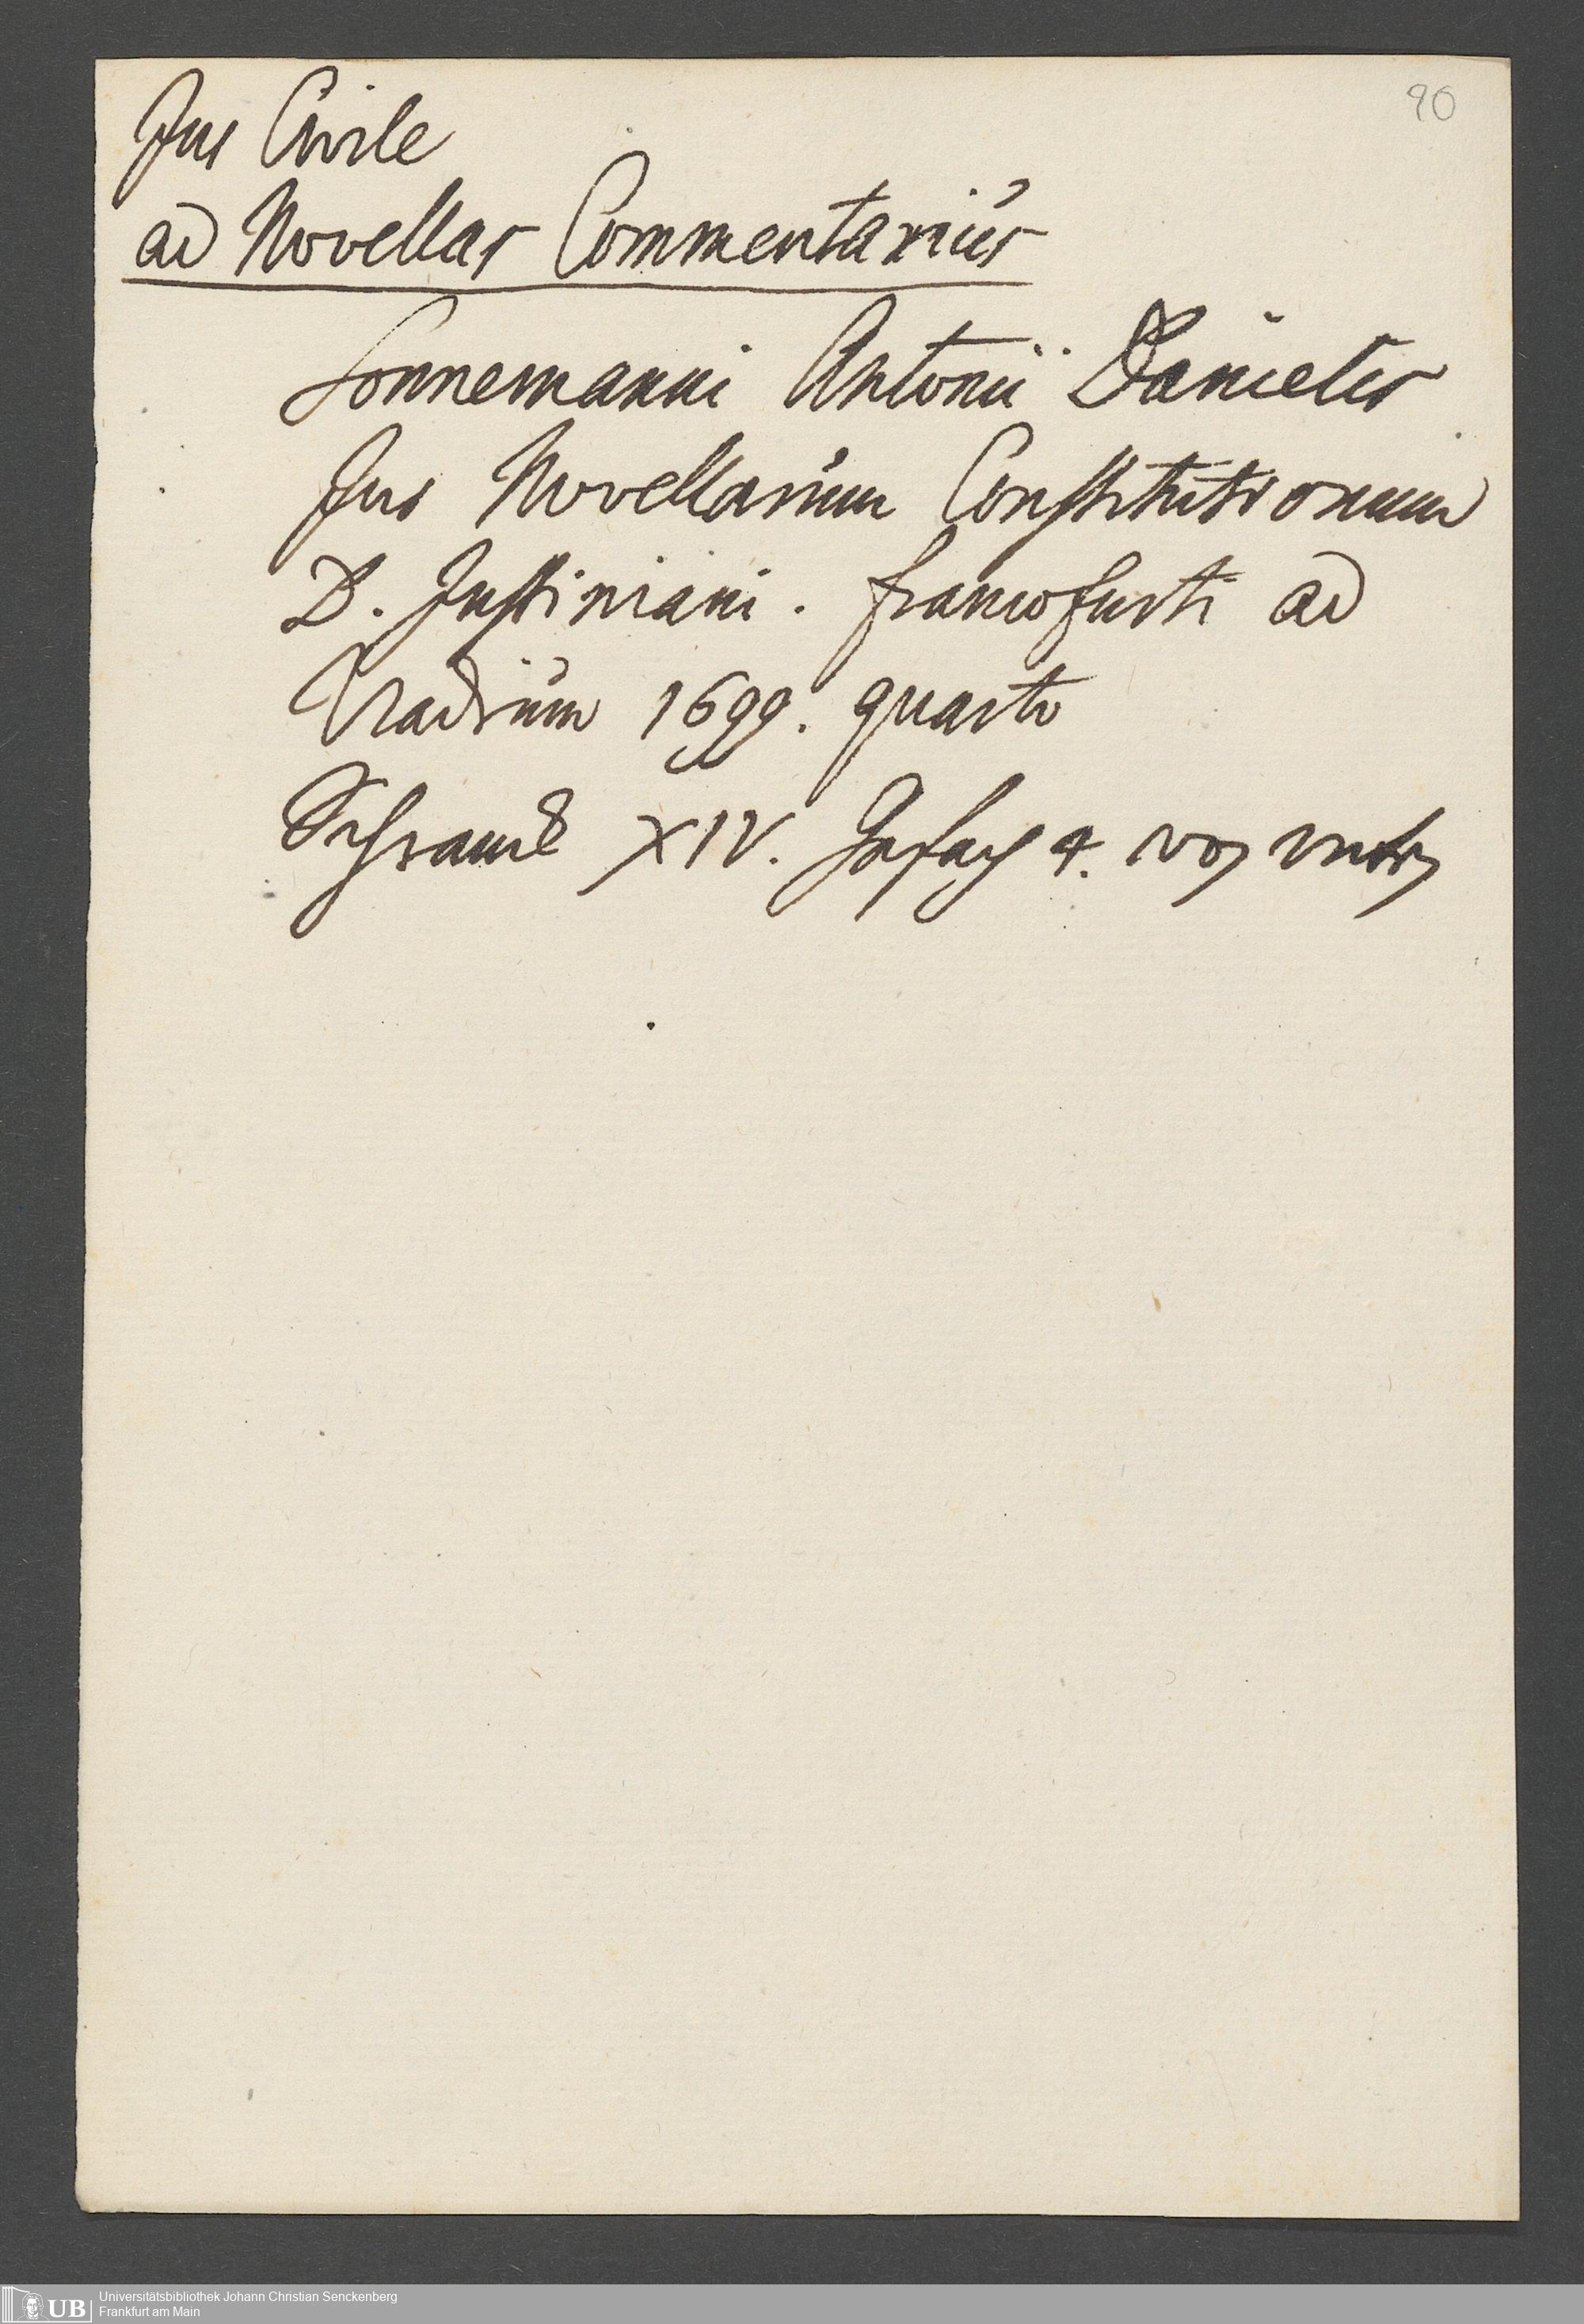 90
Jus Civile
ad Novellas Commentariùs
Sonnemanni Antonii Danielis
Jus Novellarùm Constitùtionum
D. Justiniani. francofurti ad
Viadrùm 1699. quarto
Schranck XIV. Gefach 4. von unten
UB
Universitätsbibliothek Johann Christian Senckenberg
Frankfurt am Main